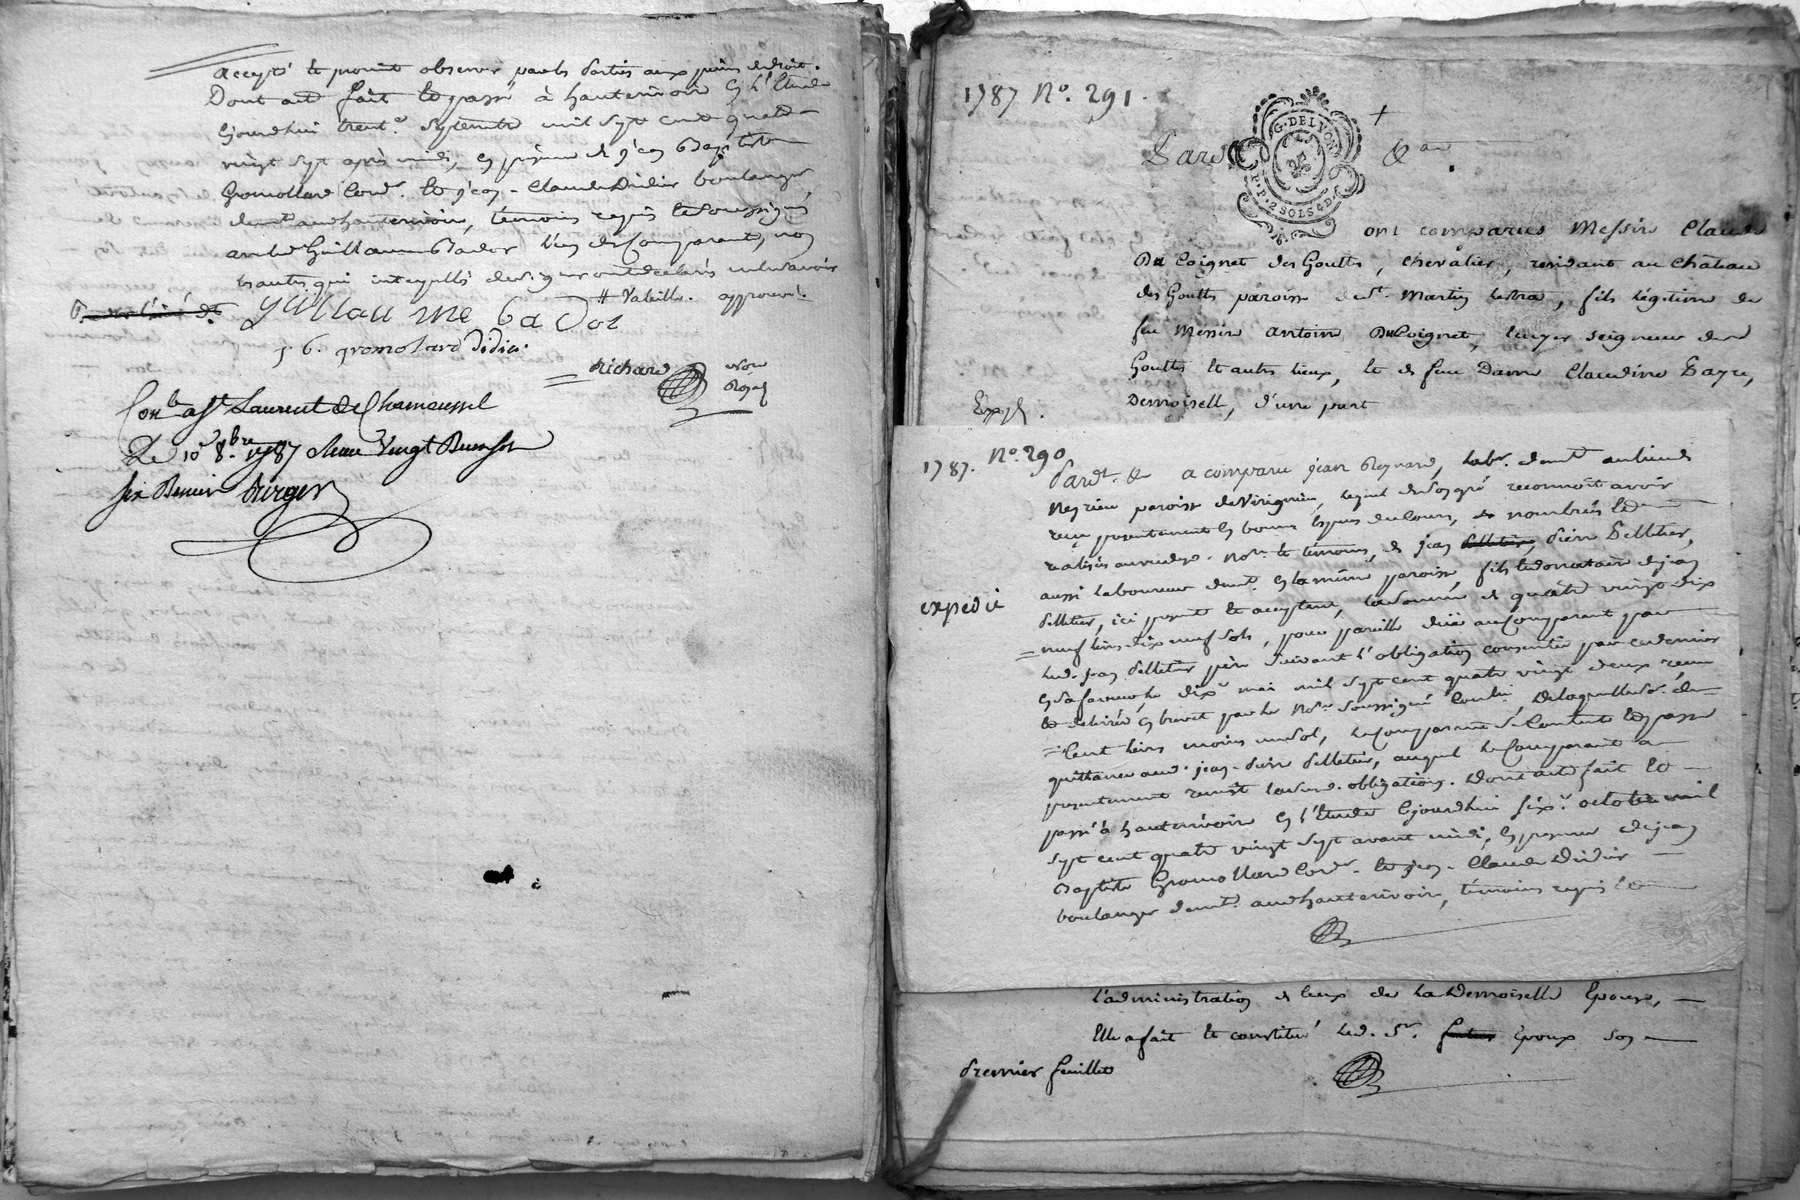 accepté et promit observer par les parties aux peines de droit.
Dont acte fait et passé à hauterivoire en l'Etude
cejourdhui trente.e septembre mil sept cent quatre
vingt sept après midi, en présence de jean Baptiste
Gromollard Cord.r et jean-Claude Didier boulanger
dem.t aud hauterivoire, témoins requis et soussignés
avec led Guillaume Bador l'un des Comparants, non
les autres qui interpellés de signer ont déclaré ne le savoir
# Vabielle. approuvé.
Guillau me bador
j. b. gromolard Didier
Richard no.re Royal
Con.lé a S.t Laurent de Chamousset
Le 10 8.bre 1787 Reçu Vingt Deux sols
six Deniers Burger
1787 N.o 291.
Pard &a
G. DE LYON
P.P. 2 SOLS 4 D.
ont comparus Messire Claude
Du Coignet des Gouttes, chevalier, residant au château
des Gouttes paroisse de S.t Martin Lestra, fils légitime de
feu Messire antoine Du Coignet, Ecuyer seigneur des
Gouttes et autres lieux, et de feue Dame Claudine Payre,
Demoiselle, d'une part
Expé.
1787. N.o 290
Pard.t &a a comparu jean Reynard, lab.r dem.t au lieu de
Meyrieu paroisse de Virigneu, lequel de son gré reconnoit avoir
reçu presentement en bonnes especes de cours, nombrées et
réalisées au vu desd. no.re et témoins, de jean pelletier, Pierre Pelletier,
aussi laboureur dem.t en la même paroisse, fils et donataire de jean
pelletier, ici present et acceptant, la somme de quatre vingt dix
expedié
neuf livres dix neuf sols, pour pareille düe au Comparant par
led. jean Pelletier père suivant l'obligation consentie par ce dernier
en sa faveur, le dix.e mai mil sept cent quatre vingt deux, reçue
et delivrée en brevet par le No.re soussigné Con.lée, De laquelle so.e de
Cent livres moins un sol, le Comparant se Contente et passe
quittance aud. jean-Pierre Pelletier, auquel le Comparant a
presentement remis lasusd. obligation. Dont acte fait et
passé à hauterivoire en l'Etude Cejourdhui six.e octobre mil
sept cent quatre vingt sept avant midi, en presence de jean
Baptiste Gromollard Cord.r et jean-Claude Didier
boulanger dem.t aud hauterivoire, témoins requis et
l'administration des biens de la Demoiselle Epouse,
Elle a fait et constitué led. S.r futur Epoux son
premier feuillet